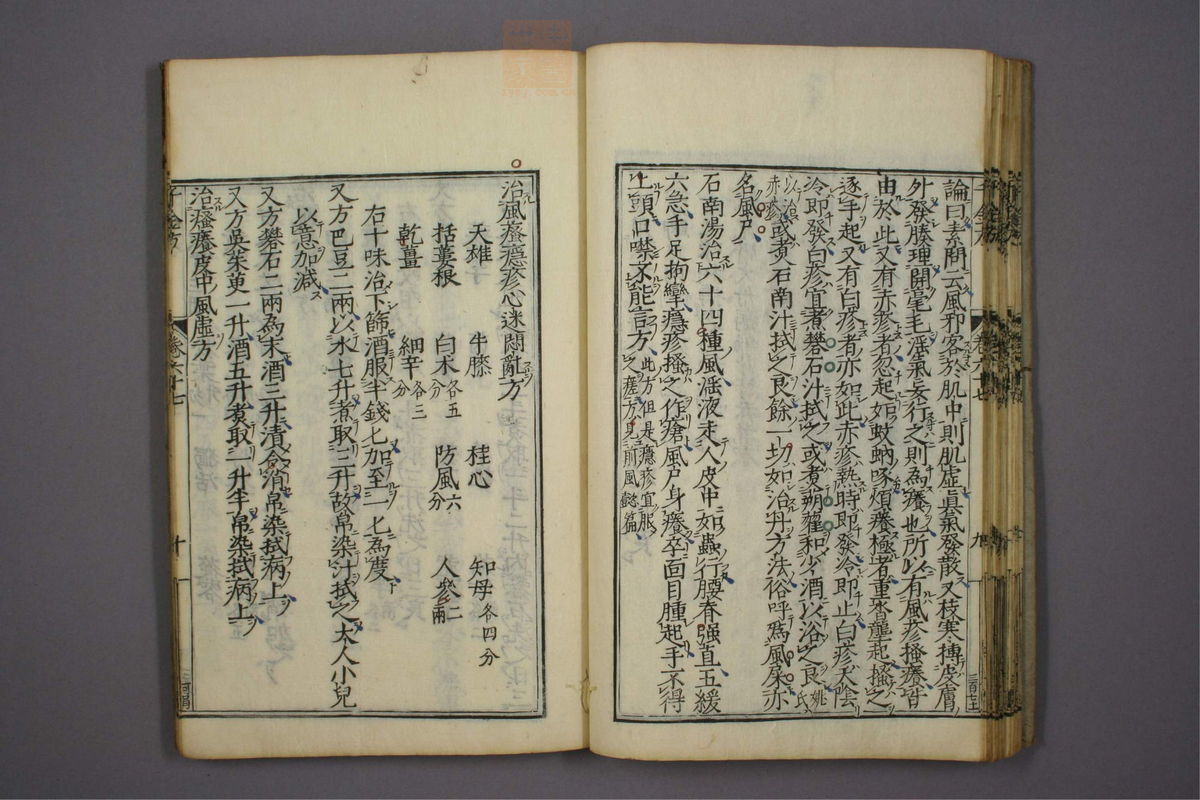 論曰素問云風邪客於肌中則肌虛眞氣發散又枝寒搏皮膚
外發腠理開毫毛淫氣妄行之則爲癢也所以有風疹搔癢皆
由於此又有赤疹者忽起如蚊蚋啄煩癢極者重沓壟起搔之
逐手起又有白疹者亦如此赤疹熱時即發冷即止白疹天陰
冷即發白疹宜煮礬石汁拭之或煮蒴藋和少酒以浴之良姚氏
以治赤疹或煮石南汁拭之良餘一切如治丹方法俗呼爲風屎亦
名風尸
石南湯治六十四種風淫液走人皮中如蟲行腰脊强直五緩
六急手足拘攣癮疹搔之作瘡風尸身癢卒面目腫起手不得
上頭口噤不能言方此方但是癮疹宜服之瘥方見前風懿篇
治風瘙癮疹心迷悶亂方
天雄 牛膝 桂心 知母各四分
栝蔞根 白朮各五分 防風六分 人參二兩
乾薑 細辛各三分
右十味治下篩酒服半錢匕加至一匕爲度
又方巴豆二兩以水七升煮取三升故帛染汁拭之大人小兒
以意加減
又方礬石二兩爲末酒三升漬令消帛染拭病上
又方吳茱萸一升酒五升煮取一升半帛染拭病上
治瘙癢皮中風虛方
千金方 卷六十七 十
卷六十七 九